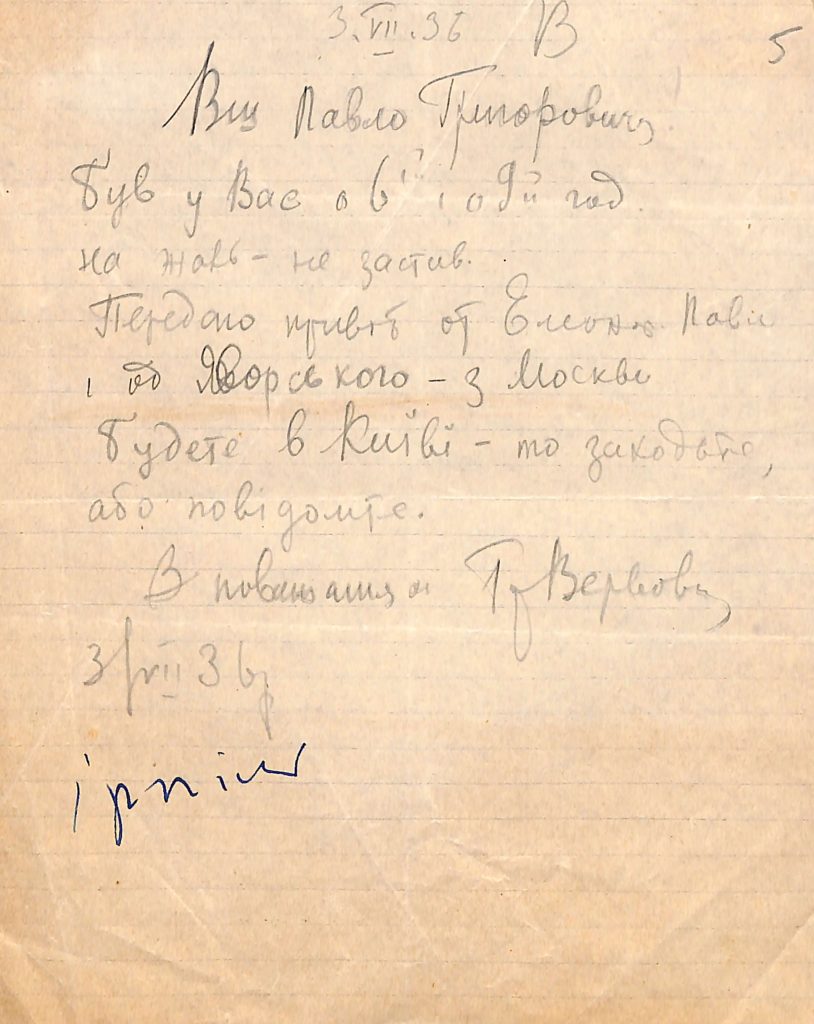 3.VII.36 В
5
Вш Павло Григорович!
Був у Вас о 6ій і о 9й год.
на жаль - не застав.
Передаю привіт от Павл
і од Яворського - з Москви
Будете в Київі - то заходьте,
або повідомте.
В Гр Верьовка
3/VII 36р
ірпінь